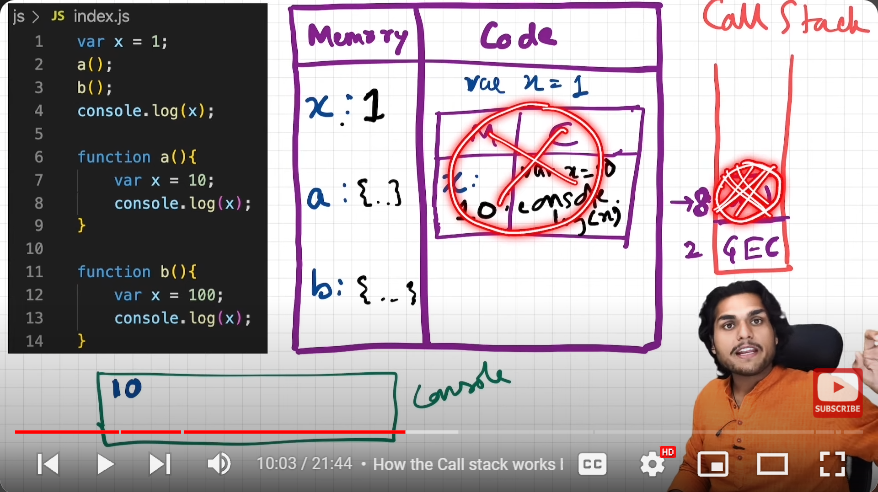 js > JS index.js
1 var x = 1;
2 a();
3 b();
4 console.log(x);
5
6 function a(){
7 var x = 10;
8 console.log(x);
9 }
10
11 function b(){
12 var x = 100;
13 console.log(x);
14 }
Memory
Code
x : 1
a : {..}
b : {...}
var x = 1
M C
x:
10
var x = 10
console.
log(x)
Call Stack
→ 8
2 GEC
10
Console
SUBSCRIBE
10:03 / 21:44 • How the Call stack works I
CC
HD